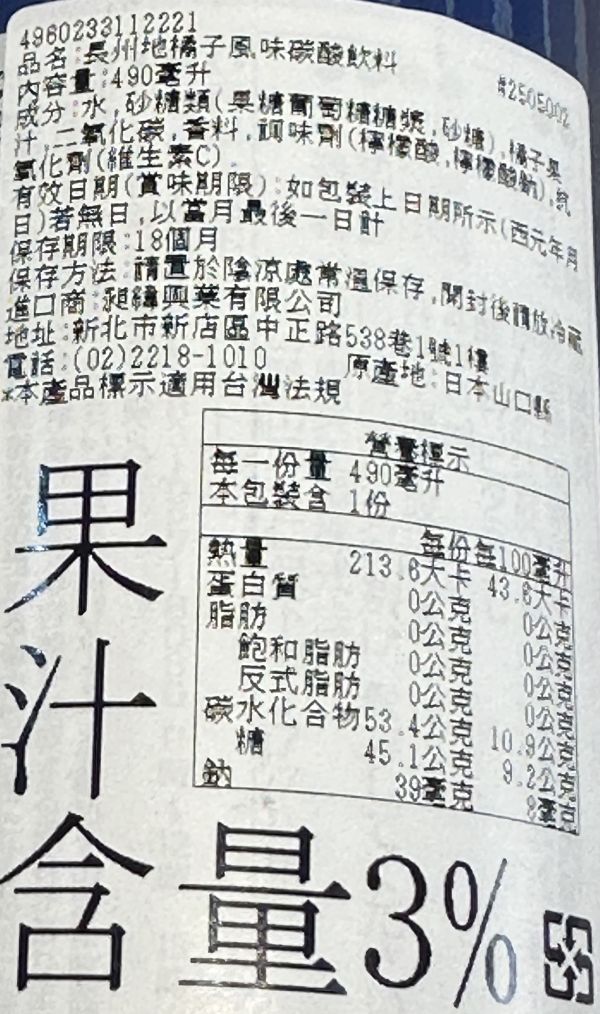 4960233112221
品名:長州地橘子風味碳酸飲料
#2505002
內容量:490毫升
成分:水,砂糖類(果糖葡萄糖糖漿,砂糖),橘子果
汁,二氧化碳,香料,調味劑(檸檬酸,檸檬酸鈉),抗
氧化劑(維生素C)
有效日期(賞味期限):如包裝上日期所示(西元年月
日)若無日,以當月最後一日計
保存期限:18個月
保存方法:請置於陰涼處常溫保存,開封後請放冷藏
進口商:昶緯興業有限公司
地址:新北市新店區中正路538巷1號1樓
電話:(02)2218-1010 原產地:日本山口縣
*本產品標示適用台灣法規
營養標示
每一份量 490毫升
本包裝含 1份
每份 每100毫升
熱量 213.6大卡 43.6大卡
蛋白質 0公克 0公克
脂肪 0公克 0公克
飽和脂肪 0公克 0公克
反式脂肪 0公克 0公克
碳水化合物 53.4公克 10.9公克
糖 45.1公克 9.2公克
鈉 39毫克 8毫克
果
汁
含量3%